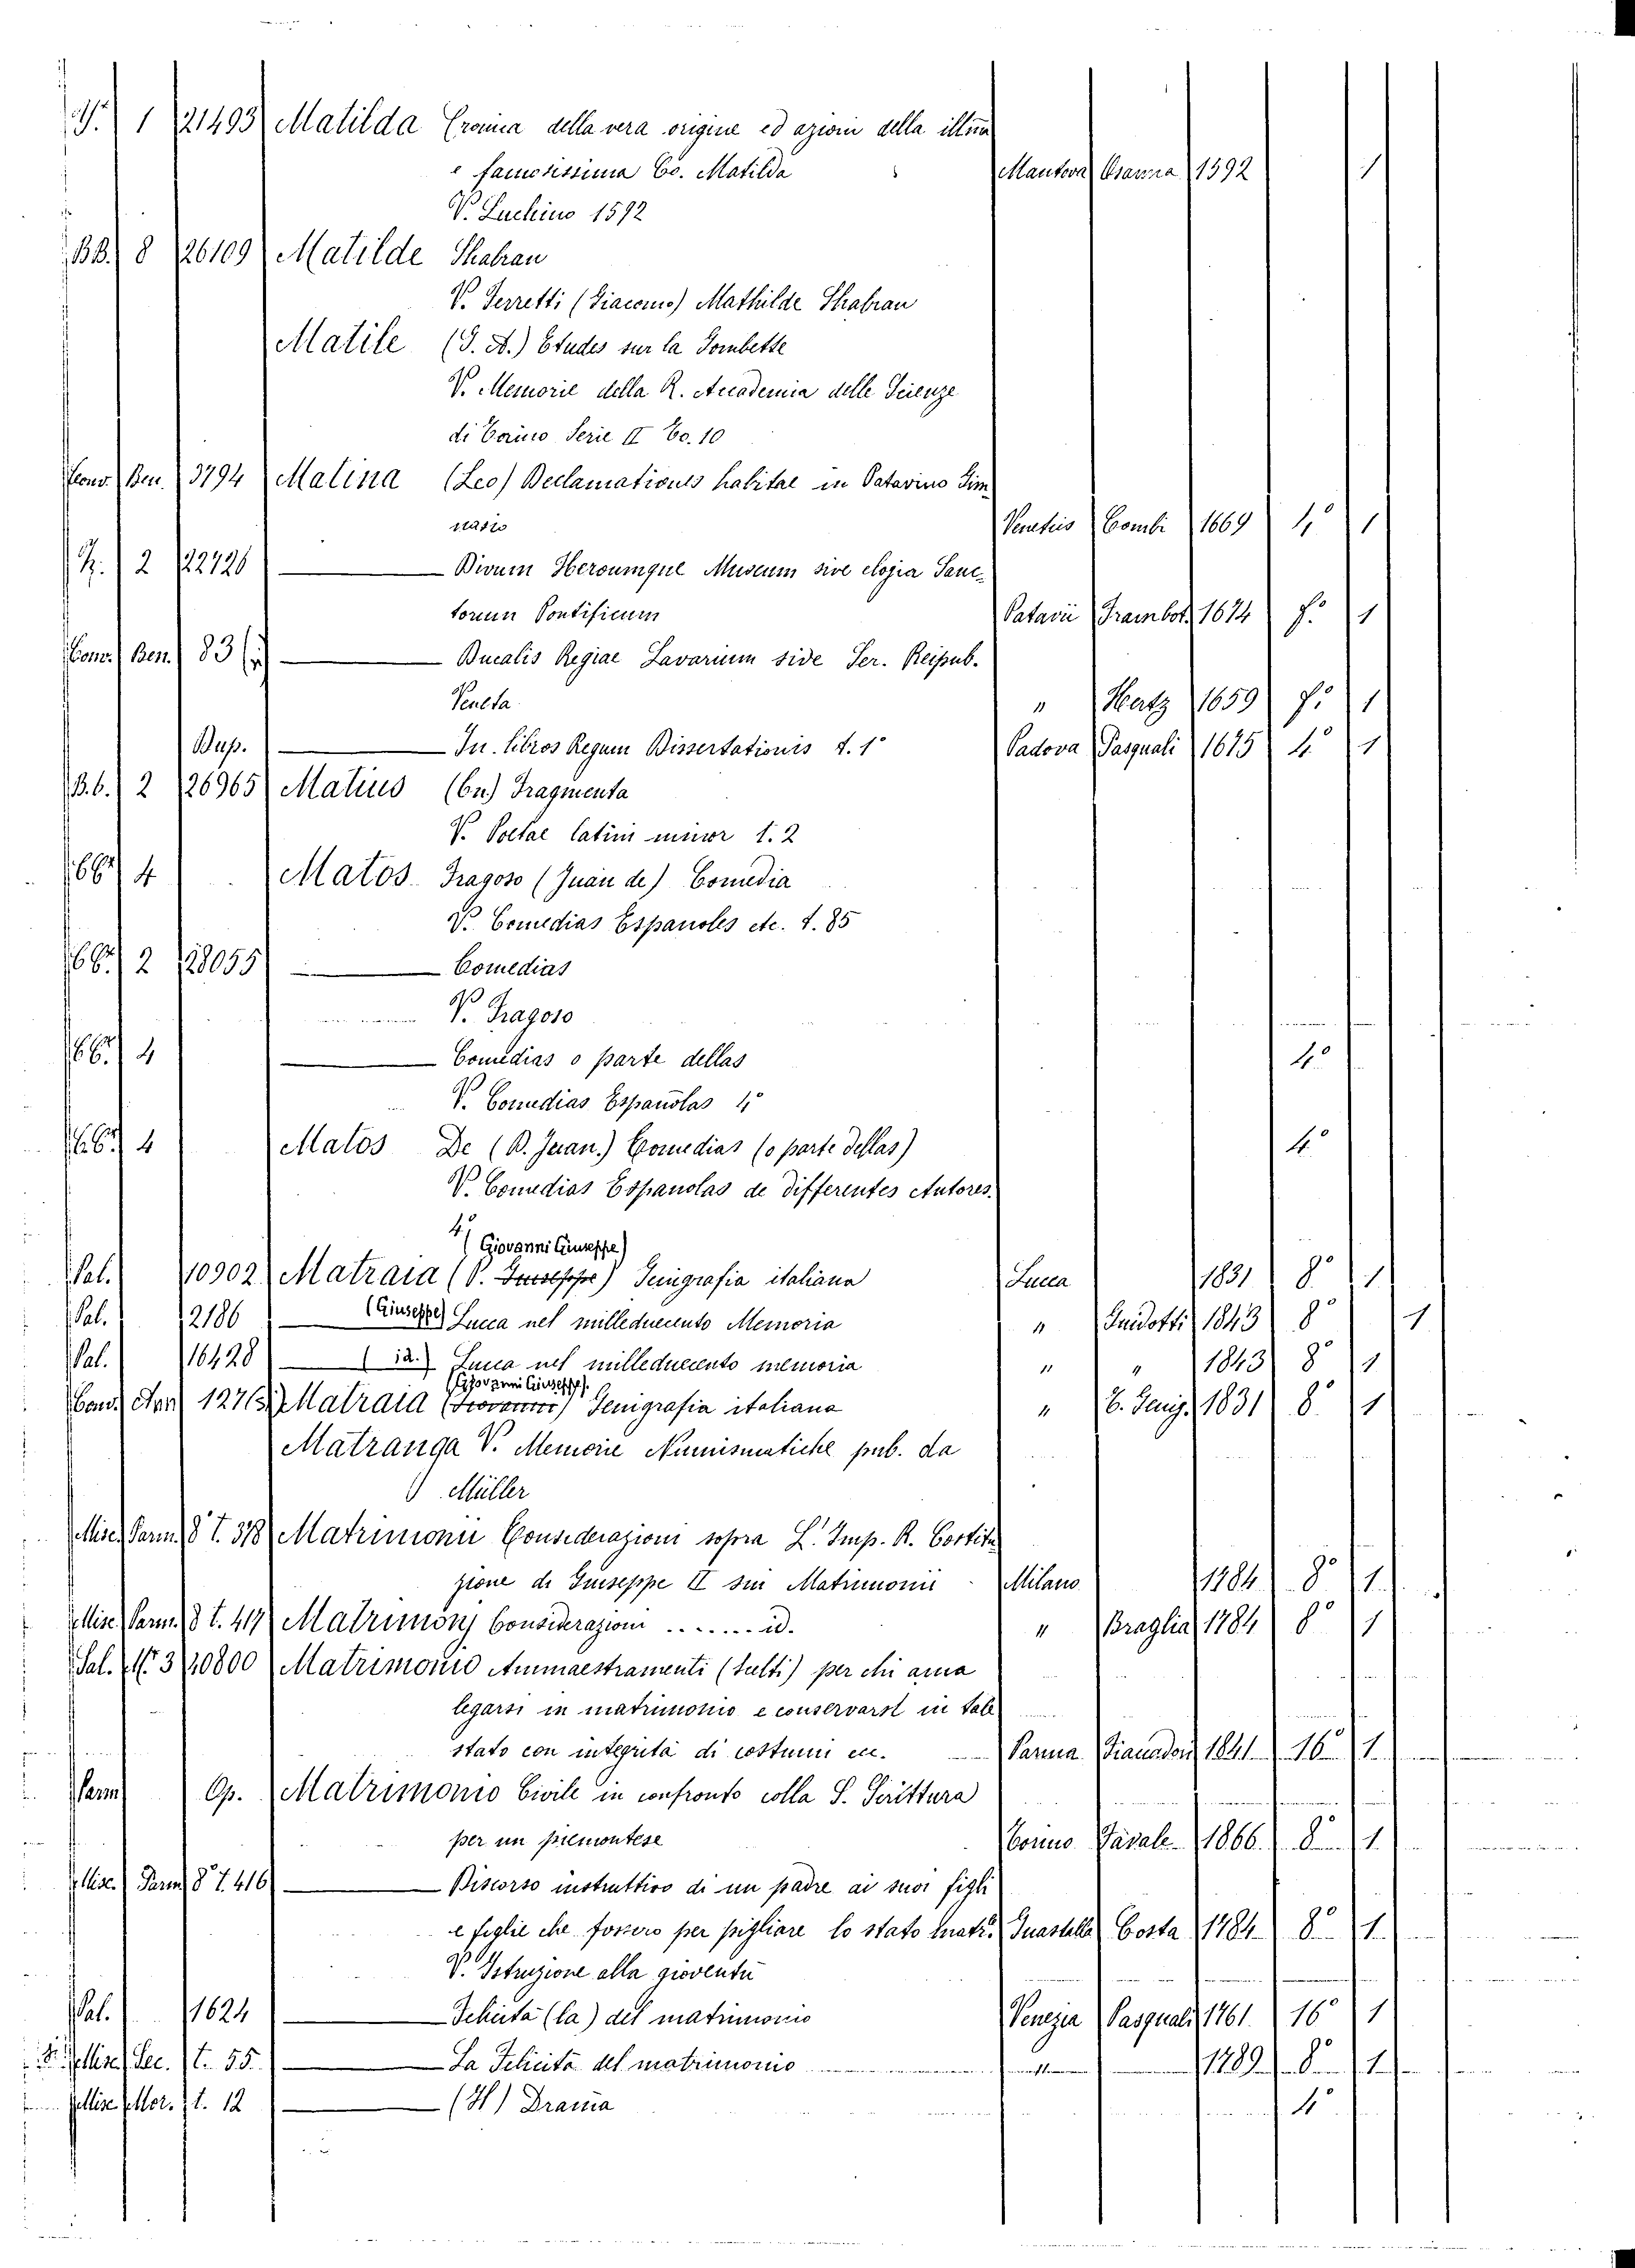 Y. 1 21493 Matilda Cronica della vera origine ed azioni della illma
e famosissima Co. Matilda Mantova Osanna 1592 1
V. Luchino 1592
BB. 8 26109 Matilde Shabran
V. Ferretti (Giacomo) Mathilde Shabran
Matile (G. A.) Etudes sur la Gombette
V. Memorie della R. Accademia delle Scienze
di Torino Serie II To. 10
Conv. Ben. 3794 Matina (Leo) Declamationes habitae in Patavino Gim
nasio Venetiis Combi 1669 4° 1
2 22726 — Divum Heroumque Museum sive elogia Sanc-
torum Pontificum Patavii Frambot. 1674 f.° 1
Conv. Ben. 83 — Ducalis Regiae Lavarium side Ser. Reipub.
Veneta " Hertz 1659 f.° 1
Dup. — In libros Regum Dissertationis t. 1° Padova Pasquali 1675 4° 1
B.b. 2 26965 Matius (Cn.) Fragmenta
V. Poetae latini minor t. 2
4 Matos Fragoso (Juan de) Comedia
V. Comedias Espanoles etc. t. 85
2 28055 — Comedias
V. Fragoso
4 — Comedias o parte dellas 4°
V. Comedias Espanolas 4°
4 Matos De (D. Juan.) Comedias (o parte dellas) 4°
V. Comedias Espanolas de differentes Autores.
4°
(Giovanni Giuseppe)
Pal. 10902 Matraia (P. Giuseppe) Genigrafia italiana Lucca 1831 8° 1
Pal. 12186 — (Giuseppe) Lucca nel milleduecento Memoria " Guidotti 1843 8° 1
Pal. 16428 — (id.) Lucca nel milleduecento memoria " " 1843 8° 1
(Giovanni Giuseppe).
Cond. Ann 1276 Matraia (Giovanni) Genigrafia italiana " T. Genig. 1831 8° 1
Matranga V. Memorie Numismatiche pub. da
Müller
Misc. Parm. 8° t. 378 Matrimonii Considerazioni sopra L'. Imp. R. Costitu
zione di Giuseppe II sui Matrimonii Milano 1784 8° 1
Misc. Parm. 8 t. 417 Matrimonj Considerazioni ....... id. " Braglia 1784 8° 1
Sal. M. 3 10800 Matrimonio Ammaestramenti (sulti) per chi ama
legarsi in matrimonio e conservarsi in tale
stato con integrità di costumi ec. Parma 1841 16° 1
Parm Op. Matrimonio Civile in confronto colla S. Scrittura
per un piemontese Torino Favale 1866 8° 1
Misc. Parm 8° t. 416 — Discorso instruttivo di un padre ai suoi figli
e figlie che fossero per pigliare lo stato matr.° Guastalla Costa 1784 8° 1
V. Istruzione alla gioventù
Pal. 11624 — Felicità (la) del matrimonio Venezia Pasquali 1761 16° 1
Misc. Sec. t. 55 — La Felicità del matrimonio " 1789 8° 1
Misc Mor. t. 12 — (Il) Drama 4°